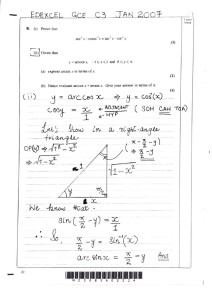 EDEXCEL GCE C3 JAN 2007
8. (i) Prove that
sec² x – cosec² x ≡ tan² x – cot² x.
(3)
(ii) Given that
y = arccos x, –1 ≤ x ≤ 1 and 0 ≤ y ≤ π,
(a) express arcsin x in terms of y.
(2)
(b) Hence evaluate arccos x + arcsin x. Give your answer in terms of π.
(1)
(ii) y = arccos x ⇒ y = cos⁻¹(x)
cos y = x/1 ← ADJACENT / HYP (SOH CAH TOA)
Let's show in a right-angle
triangle
OPP(y) = √1² - x²
⇒ √1 - x²
π - π/2 - y
⇒ π/2 - y
1
√1 - x²
y
x
π/2
We know that -
sin(π/2 - y) = x/1
∴ So, π/2 - y = sin⁻¹(x)
arcsin x = π/2 - y Ans